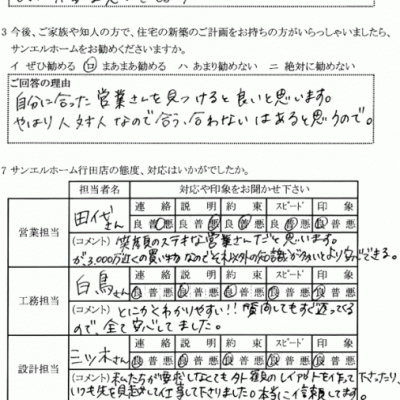 3 今後、ご家族や知人の方で、住宅の新築のご計画をお持ちの方がいらっしゃいましたら、
サンエルホームをお勧めくださいますか。
イ ぜひ勧める ロ まあまあ勧める ハ あまり勧めない ニ 絶対に勧めない
ご回答の理由
自分に合った営業さんを見つけると良いと思います。
やはり人対人なので合う、合わないはあると思うので。
7 サンエルホーム行田店の態度、対応はいかがでしたか。
担当者名 対応や印象をお聞かせ下さい
連絡 説明 約束 スピード 印象
営業担当 田代さん 良普悪 良普悪 良普悪 良普悪 良普悪
(コメント) 笑顔のステキな営業さんだと思います。
が、3,000万近くの買い物なのでそれ以外の知識が多いとより安心できる。
連絡 説明 約束 スピード 印象
工務担当 白鳥さん 良普悪 良普悪 良普悪 良普悪 良普悪
(コメント) とにかくわかりやすい!! 質問してもすぐ返ってくる
ので、全て安心してました。
連絡 説明 約束 スピード 印象
設計担当 三ツ木さん 良普悪 良普悪 良普悪 良普悪 良普悪
(コメント) 私たちが要求しなくても外観のレイアウトを作って下さったり、
いつも先を見越して仕事して下さりました。本当に信頼してます。